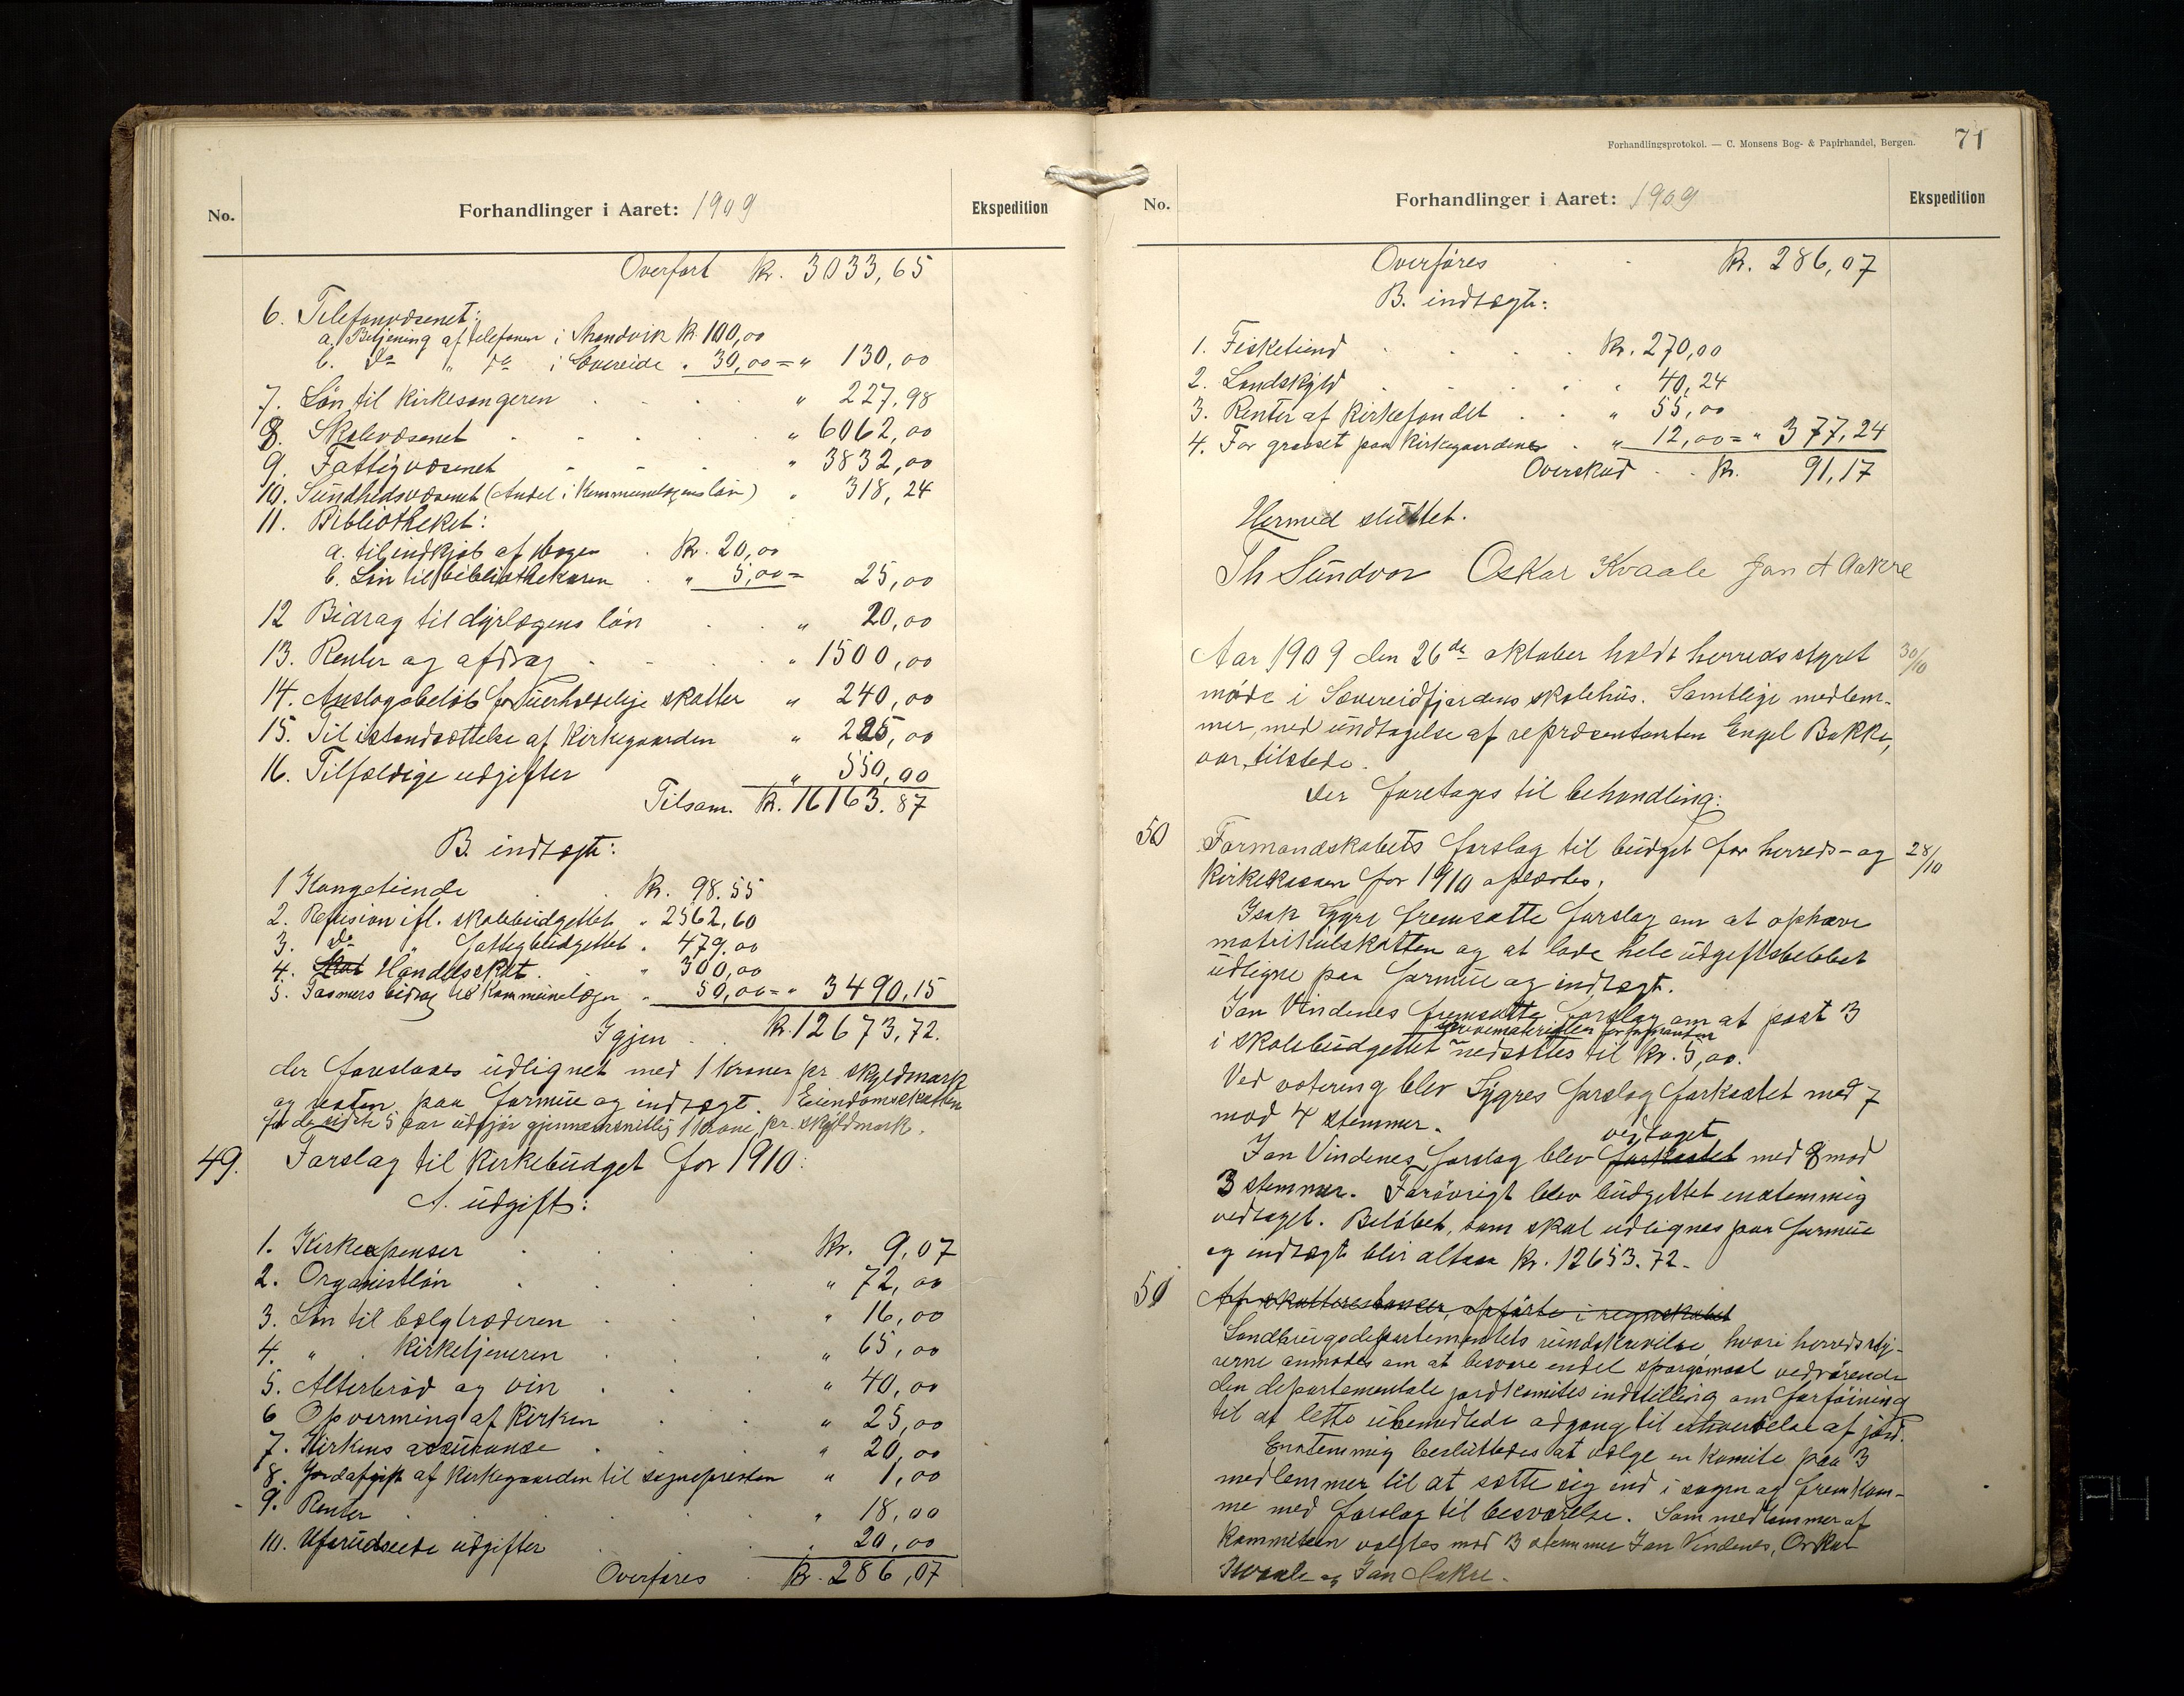 No.
Forhandlinger i Aaret: 1909
Ekspedition
Overført Kr. 3033,65
6. Telefonvæsenet:
a. Betjening af telefonen i Strandvik Kr. 100,00
b. Do " do i Sævereide " 30,00 = " 130,00
7. Løn til kirkesangeren " 227.98
8. Skolevæsenet " 6062,00
9. Fattigvæsenet " 3832,00
10. Sundhedsvæsenet (Andel i kommunelægens løn) " 318,24
11. Bibliotheket:
a. til indkjøb af bøger Kr. 20,00
b. Løn til bibliothekaren " 5,00 = 25,00
12 Bidrag til dyrlægens løn " 20,00
13. Renter og afdrag " 1500,00
14. Anslagsbeløb for uerholdelige skatter " 240,00
15. Til istandsættelse af kirkegaarden " 225,00
16. Tilfældige udgifter " 550,00
Tilsam. Kr. 16163.87
B. indtægt:
1 Kongetiende Kr. 98.55
2. Refusion ifl. skolebudgettet " 2562,60
3. Do " fattigbudgettet " 479,00
4. Skat Handelsskat " 300,00
5. bidrag til kommunelægen " 50,00 = " 3490,15
Igjen Kr. 12673,72.
der foreslaaes udlignet med 1 krone pr. skyldmark
og resten paa formue og indtægt. Eiendomsskatten
for de sidste 5 aar udgjør gjennemsnitlig 1 krone pr. skyldmark.
49. Forslag til kirkebudget for 1910:
A. udgift:
1. Kirkeexpenser Kr. 9,07
2. Organistløn " 72,00
3. Løn til bælgtræderen " 16,00
4. " kirketjeneren " 65,00
5. Alterbrød og vin " 40,00
6 Opvarming af kirken " 25,00
7. Kirkens assuranse " 20,00
8. Jordafgift af kirkegaarden til sognepresten " 1,00
9. Renter " 18,00
10. Uforudseede udgifter " 20,00
Overføres Kr. 286,07
Forhandlingsprotokol. — C. Monsens Bog- & Papirhandel, Bergen.
71
No.
Forhandlinger i Aaret: 1909
Ekspedition
Overføres Kr. 286,07
B. indtægt:
1. Fisketiend Kr. 270,00
2. Landskyld " 40,24
3. Renter af kirkefondet " 55,00
4. For græsset paa kirkegaardene " 12,00 = " 377,24
Overskud Kr. 91,17
Hermed sluttet.
Th Sundvor Oskar Kvaale Jan A Aakre
Aar 1909 den 26de oktober holdt herredsstyret 30/10
møde i Sævereidfjordens skolehus. Samtlige medlem-
mer, med undtagelse af repræsentanten Engel Bakke,
var tilstede.
Der foretages til behandling:
50 Formandskabets forslag til budget for herreds- og 28/10
kirkekassen for 1910 oplæstes.
Isak Lygre fremsatte forslag om at ophæve
matrikulskatten og at lade hele udgiftsbeløbet
udligne paa formue og indtægt.
Jan Vindenes fremsatte forslag om at post 3
skrivematerialer for formanden
i skolebudgettet nedsættes til Kr. 5,00.
Ved votering blev Lygres forslag forkastet med 7
mod 4 stemmer.
vedtaget
Jan Vindenes forslag blev forkastet med 8 mod
3 stemmer. Forøvrigt blev budgettet enstemmig
vedtaget. Beløbet, som skal udlignes paa formue
og indtægt blir altsaa Kr. 12653.72.
51 Af skatterestancer, opførte i regnskabet
Landbrugsdepartementets rundskrivelse, hvori herredssty-
rerne anmodes om at besvare endel spørgsmaal vedrørende
den departementale jordkomites indstilling om forføining
til at lette ubemidlede adgang til erhvervelse af jord.
Enstemmig besluttedes at vælge en komite paa 3
medlemmer til at sætte sig ind i sagen og fremkom-
me med forslag til besvarelse. Som medlemmer af
kommiteen valgtes med 3 stemmer Jan Vindenes, Oskar
Kvaale og Jan Aakre.
A4